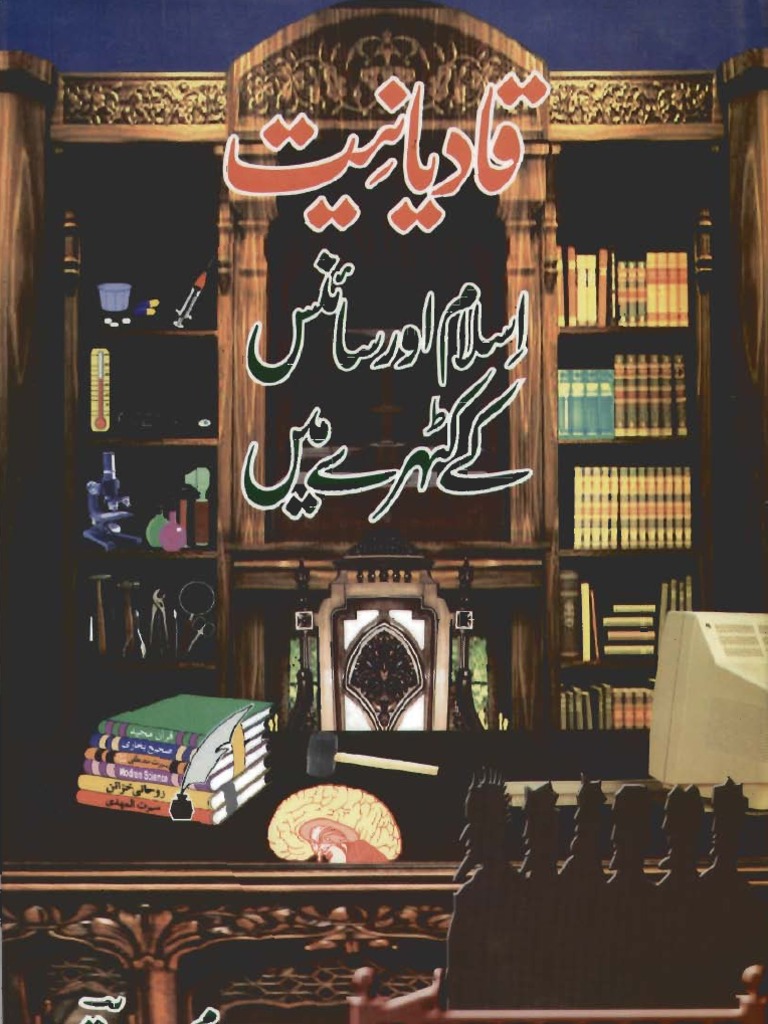 قادیانیت
اِسلام اور سائنس
کے کٹہرے میں
قرآن مجید
صحیح بخاری
Modren Science
روحانی خزائن
سیرت المہدی